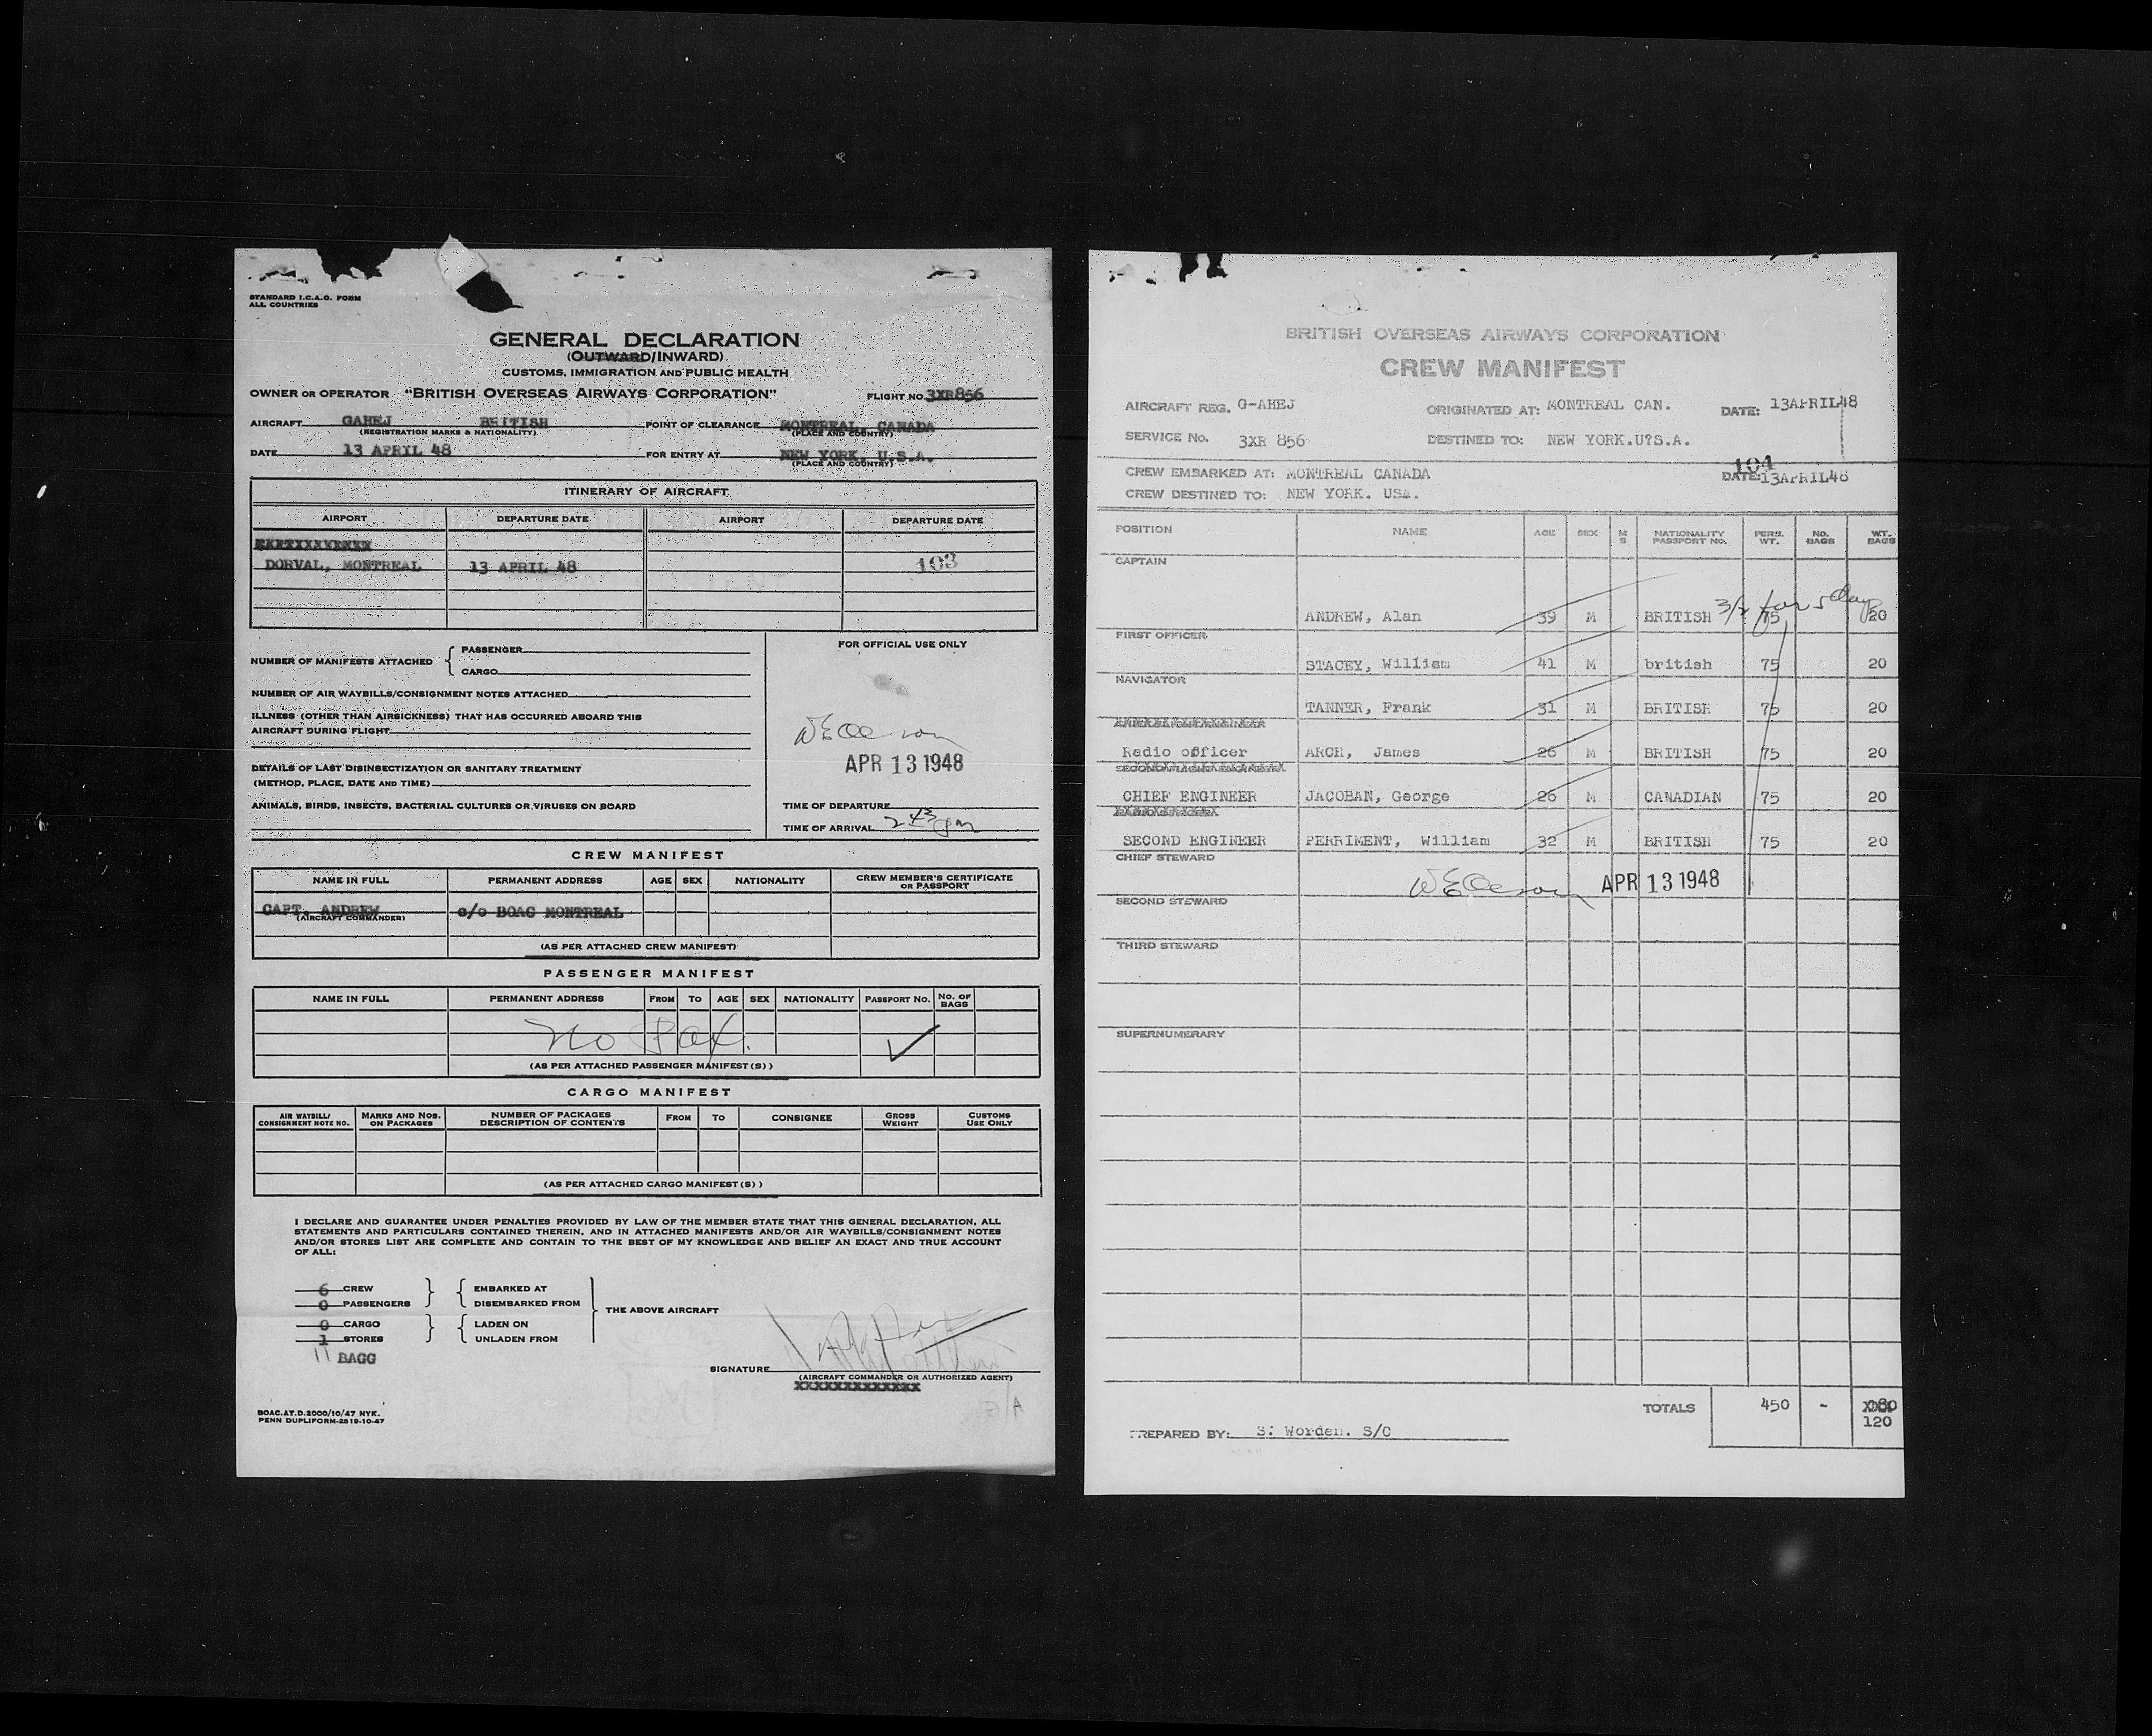 STANDARD I.C.A.O. FORM
ALL COUNTRIES
GENERAL DECLARATION
(OUTWARD/INWARD)
CUSTOMS, IMMIGRATION AND PUBLIC HEALTH
OWNER OR OPERATOR "BRITISH OVERSEAS AIRWAYS CORPORATION" FLIGHT NO. 3XR856
AIRCRAFT GAHEJ BRITISH POINT OF CLEARANCE MONTREAL, CANADA
(REGISTRATION MARKS & NATIONALITY) (PLACE AND COUNTRY)
DATE 13 APRIL 48 FOR ENTRY AT NEW YORK, U.S.A.
(PLACE AND COUNTRY)
ITINERARY OF AIRCRAFT
AIRPORT DEPARTURE DATE AIRPORT DEPARTURE DATE
DORVAL, MONTREAL 13 APRIL 48 103
NUMBER OF MANIFESTS ATTACHED { PASSENGER
CARGO
FOR OFFICIAL USE ONLY
NUMBER OF AIR WAYBILLS/CONSIGNMENT NOTES ATTACHED
ILLNESS (OTHER THAN AIRSICKNESS) THAT HAS OCCURRED ABOARD THIS
AIRCRAFT DURING FLIGHT
APR 13 1948
DETAILS OF LAST DISINSECTIZATION OR SANITARY TREATMENT
(METHOD, PLACE, DATE AND TIME)
ANIMALS, BIRDS, INSECTS, BACTERIAL CULTURES OR VIRUSES ON BOARD
TIME OF DEPARTURE
TIME OF ARRIVAL 2 43 pm
CREW MANIFEST
NAME IN FULL PERMANENT ADDRESS AGE SEX NATIONALITY CREW MEMBER'S CERTIFICATE OR PASSPORT
CAPT. ANDREW c/o BOAC MONTREAL
(AIRCRAFT COMMANDER)
(AS PER ATTACHED CREW MANIFEST)
PASSENGER MANIFEST
NAME IN FULL PERMANENT ADDRESS FROM TO AGE SEX NATIONALITY PASSPORT NO. NO. OF BAGS
No Pax.
(AS PER ATTACHED PASSENGER MANIFEST(S))
CARGO MANIFEST
AIR WAYBILL/ CONSIGNMENT NOTE NO. MARKS AND NOS. ON PACKAGES NUMBER OF PACKAGES DESCRIPTION OF CONTENTS FROM TO CONSIGNEE GROSS WEIGHT CUSTOMS USE ONLY
(AS PER ATTACHED CARGO MANIFEST(S))
I DECLARE AND GUARANTEE UNDER PENALTIES PROVIDED BY LAW OF THE MEMBER STATE THAT THIS GENERAL DECLARATION, ALL
STATEMENTS AND PARTICULARS CONTAINED THEREIN, AND IN ATTACHED MANIFESTS AND/OR AIR WAYBILLS/CONSIGNMENT NOTES
AND/OR STORES LIST ARE COMPLETE AND CONTAIN TO THE BEST OF MY KNOWLEDGE AND BELIEF AN EXACT AND TRUE ACCOUNT
OF ALL:
6 CREW EMBARKED AT
0 PASSENGERS DISEMBARKED FROM
THE ABOVE AIRCRAFT
0 CARGO LADEN ON
1 STORES UNLADEN FROM
11 BAGG
SIGNATURE
(AIRCRAFT COMMANDER OR AUTHORIZED AGENT)
XXXXXXXXXXXXX
BOAC.AT.D.2000/10/47 NYK.
PENN DUPLIFORM-2819-10-47
BRITISH OVERSEAS AIRWAYS CORPORATION
CREW MANIFEST
AIRCRAFT REG. G-AHEJ ORIGINATED AT: MONTREAL CAN. DATE: 13APRIL48
SERVICE No. 3XR 856 DESTINED TO: NEW YORK.U?S.A.
104
CREW EMBARKED AT: MONTREAL CANADA DATE:13APRIL48
CREW DESTINED TO: NEW YORK. USA.
POSITION NAME AGE SEX M S NATIONALITY PASSPORT No. PERS. WT. NO. BAGS WT. BAGS
CAPTAIN
3/2 for 5 days
ANDREW, Alan 39 M BRITISH 75 20
FIRST OFFICER
STACEY, William 41 M british 75 20
NAVIGATOR
TANNER, Frank 31 M BRITISH 75 20
Radio officer ARCH, James 26 M BRITISH 75 20
CHIEF ENGINEER JACOBAN, George 26 M CANADIAN 75 20
SECOND ENGINEER PERRIMENT, William 32 M BRITISH 75 20
CHIEF STEWARD
APR 13 1948
SECOND STEWARD
THIRD STEWARD
SUPERNUMERARY
TOTALS 450 -
120
PREPARED BY: S: Worden. S/C